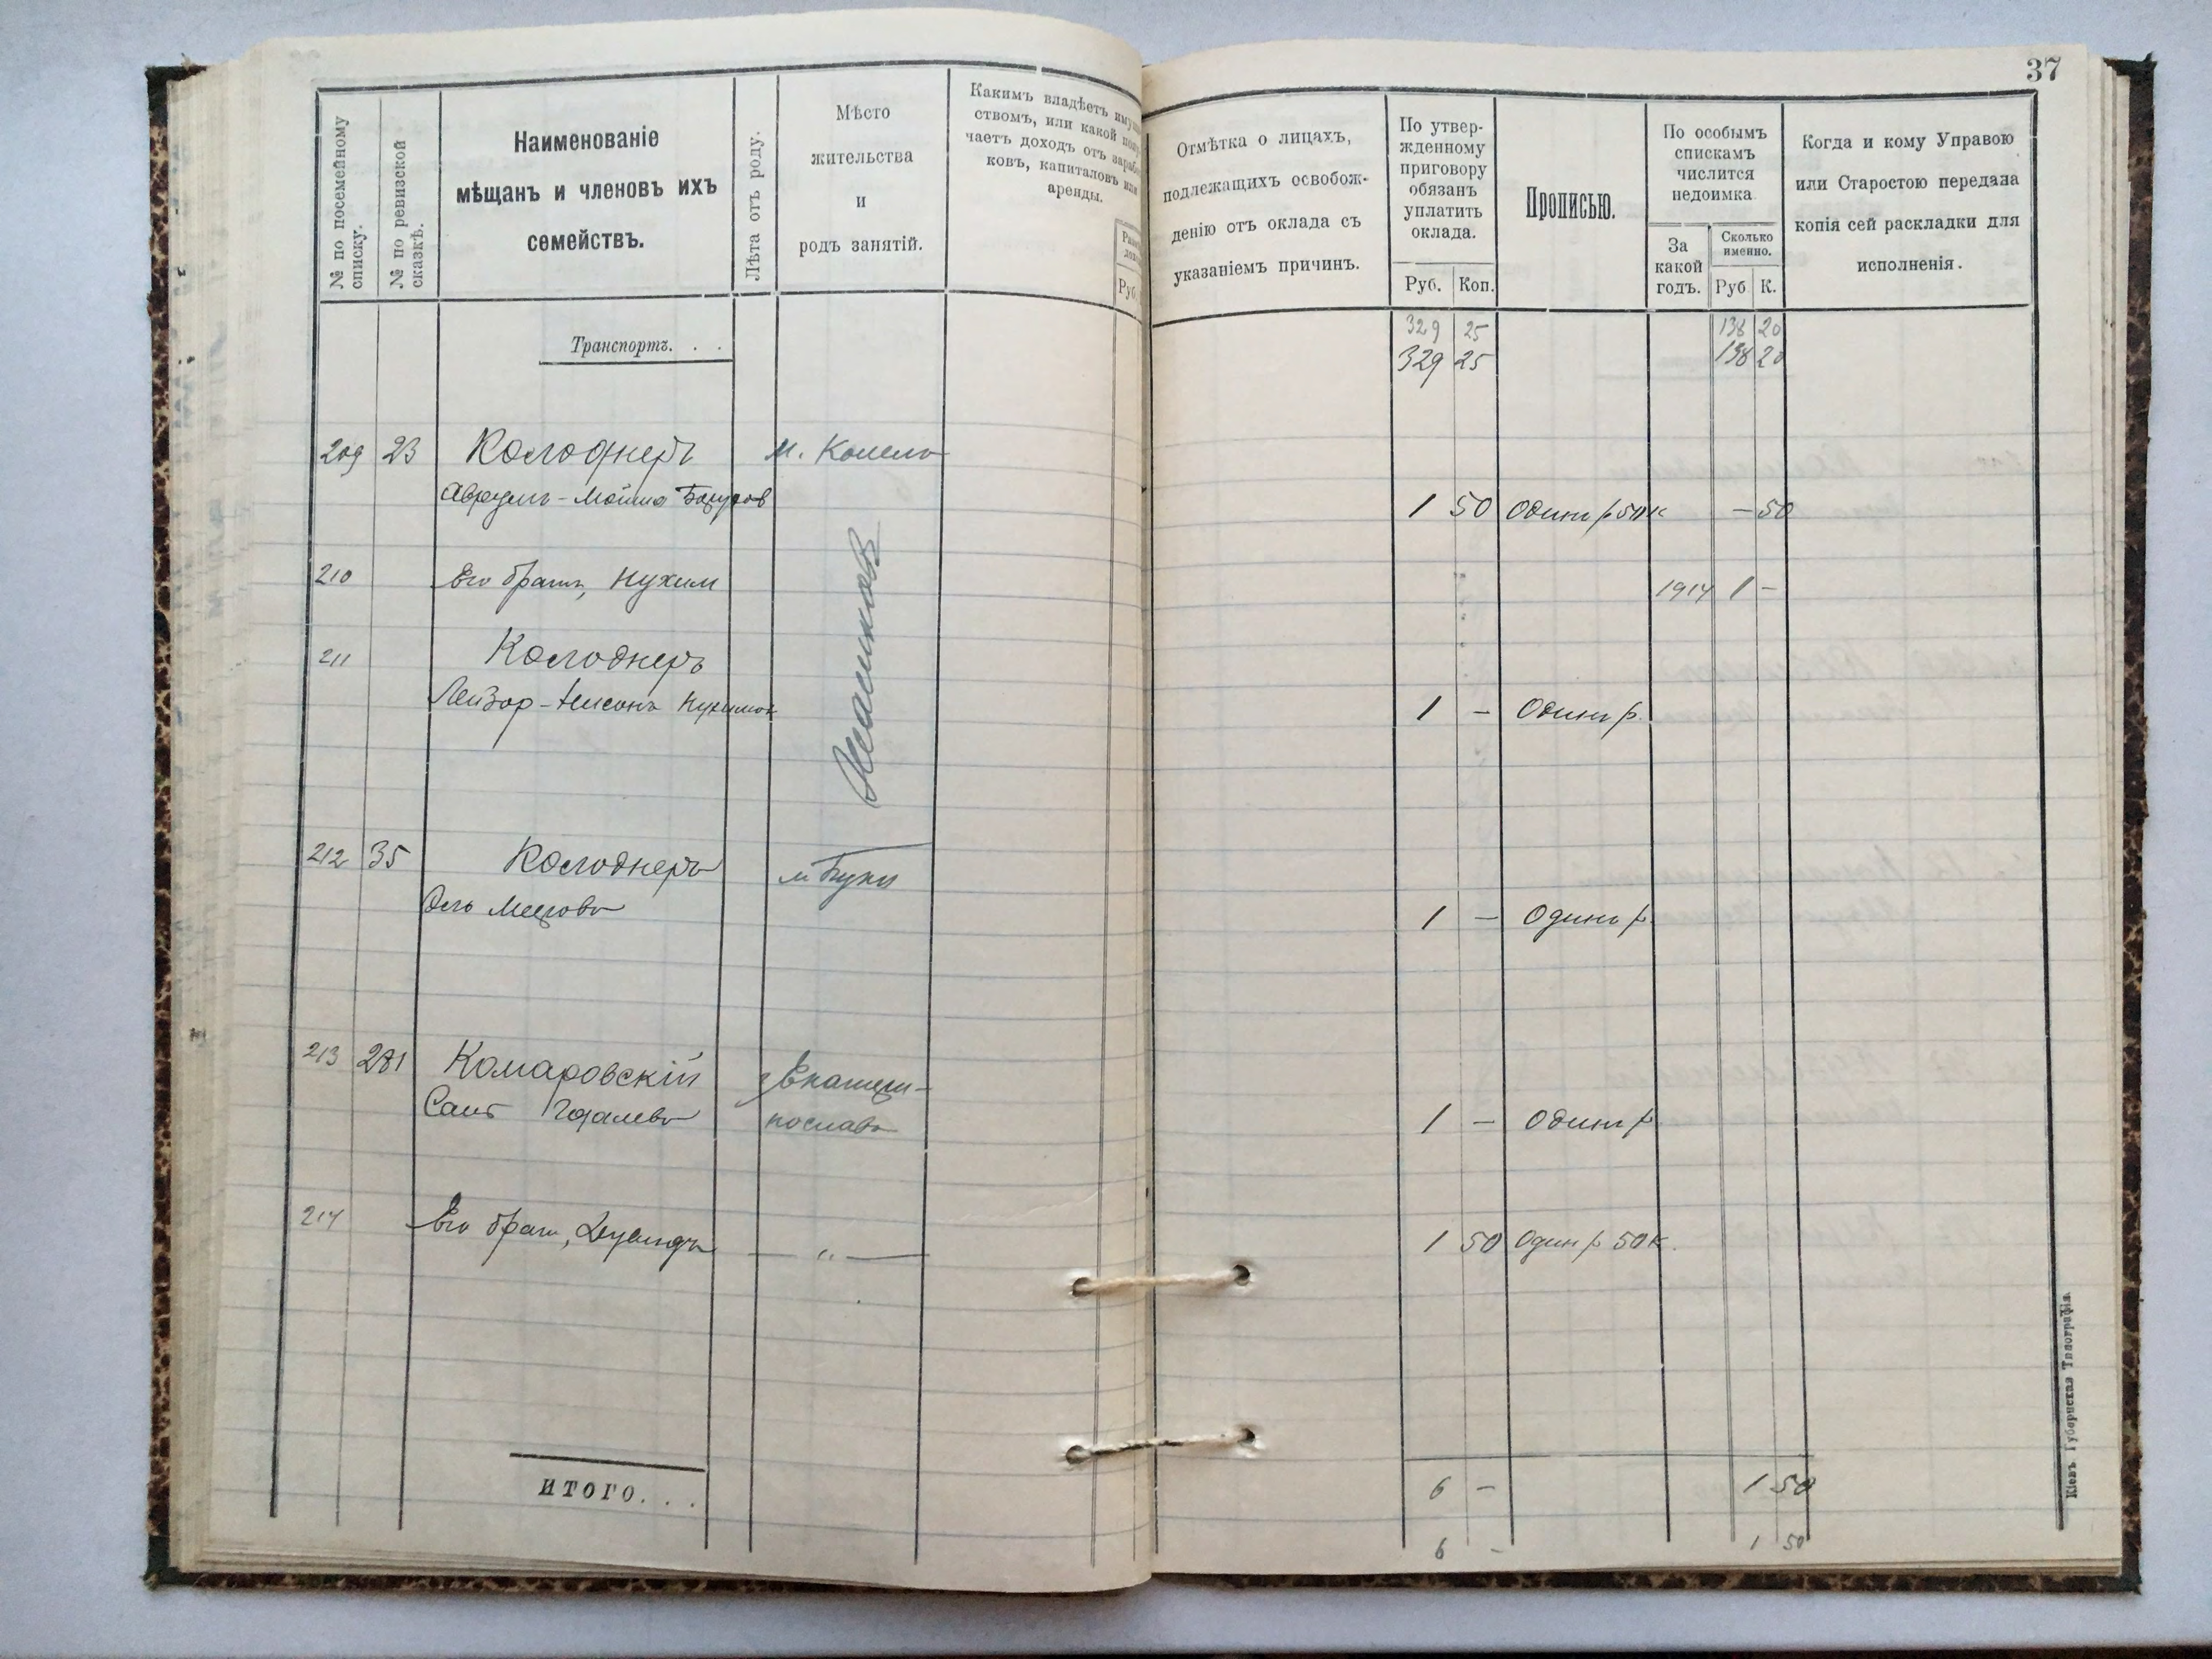 37
№ по посемейному
списку.
№ по ревизской
сказкѣ.
Наименованіе
мѣщанъ и членовъ ихъ
семействъ.
Лѣта отъ роду.
Мѣсто
жительства
и
родъ занятій.
Какимъ владѣетъ
ствомъ, или какой
чаетъ доходъ отъ
ковъ, капиталовъ или
аренды.
Руб.
Отмѣтка о лицахъ,
подлежащихъ освобож-
денію отъ оклада съ
указаніемъ причинъ.
По утвер-
жденному
приговору
обязанъ
уплатить
оклада.
Руб. Коп.
Прописью.
По особымъ
спискамъ
числится
недоимка
За
какой
годъ.
Сколько
именно.
Руб К.
Когда и кому Управою
или Старостою передана
копія сей раскладки для
исполненія.
Транспортъ. . .
329 25 138 20
329 25 138 20
209 23 Колоднеръ м.
1 50 Одинъ р 50 к — 50
210 Его братъ, Нухим 1914 1 —
211 Колоднеръ
Лейзор-Нисонъ
1 — Одинъ р.
212 35 Колоднеръ м Буки
1 — Одинъ р.
213 281 Комаровскій
1 — Одинъ р
214 Его брат, — „ — 1 50 Один р 50 к.
ИТОГО. . .
6 — 1 50
6 - 1 50
Кіевъ. Губернская Типографія.